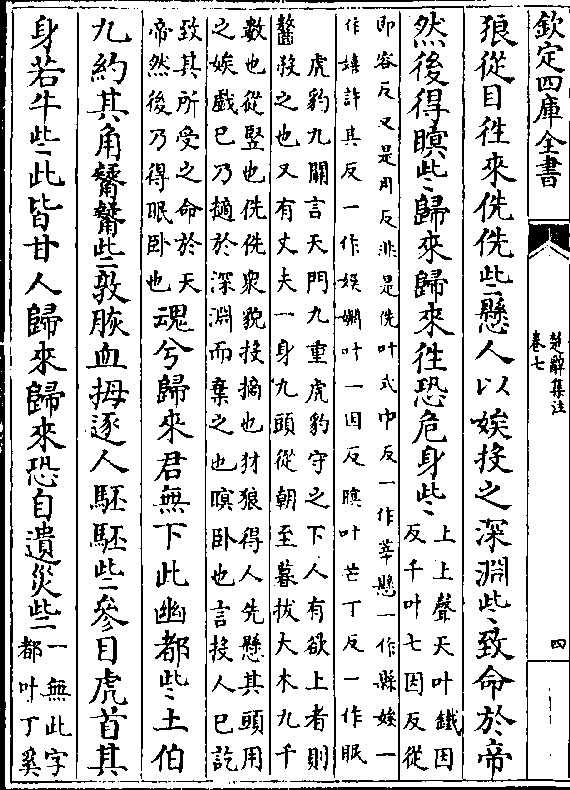 欽定四庫全書
楚辭集注
卷七
四
狼從目往來侁侁些二懸人以娭投之深淵些二致命於帝
然後得瞑些二歸來歸來往恐危身些二上上聲天叶鐵因
反千叶七因反從
即容反又是用反非是侁叶式巾反一作莘懸一作縣娭一
作嬉許其反一作娯淵叶一因反瞑叶芒丁反一作眠
虎豹九關言天門九重虎豹守之下人有欲上者則
齧殺之也又有丈夫一身九頭從朝至暮拔大木九千
數也從竪也侁侁衆貌投擿也犲狼得人先懸其頭用
之娭戲已乃擿於深淵而棄之也瞑卧也言投人已訖
致其所受之命於天
帝然後乃得眠卧也魂兮歸來君無下此幽都些二土伯
九約其角觺觺些二敦脄血拇逐人駓駓些二參目虎首其
身若牛些二此皆甘人歸來歸來恐自遺災些二一無此字
都叶丁奚